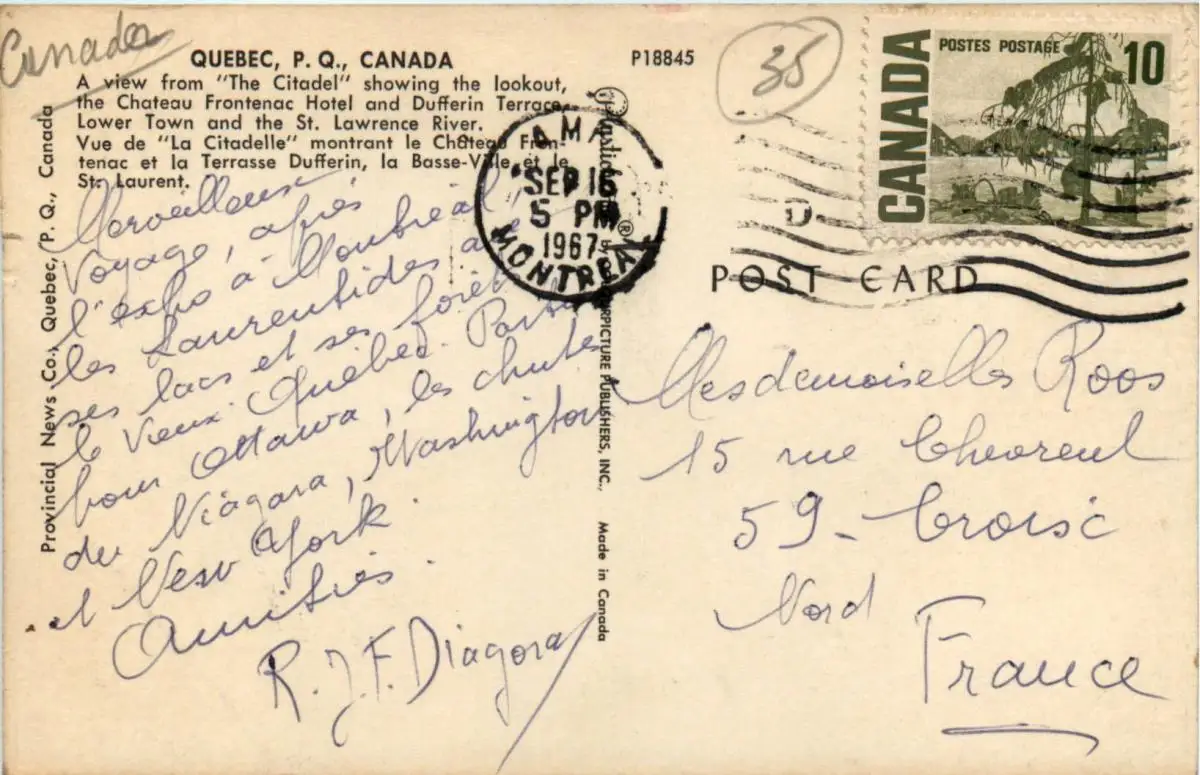 Canada
QUEBEC, P. Q., CANADA
A view from "The Citadel" showing the lookout,
the Chateau Frontenac Hotel and Dufferin Terrace,
Lower Town and the St. Lawrence River.
Vue de "La Citadelle" montrant le Château Fron-
tenac et la Terrasse Dufferin, la Basse-Ville et le
St. Laurent.
P18845
35
CANADA
POSTES POSTAGE
10
SEP 16
5 PM
1967
MONTREAL
POST CARD
Merveilleux
voyage, après
l'expo à Montréal,
les Laurentides
ses lacs et ses forêts
le vieux Québec. Partons
pour Ottawa, les chutes
du Niagara, Washington
et New York.
Amitiés.
R. J. F. Diagora
Mesdemoiselles Roos
15 rue Chevreul
59 - Croix
Nord
France
Provincial News Co., Quebec, P. Q., Canada
PUBLISHERS, INC., Made in Canada